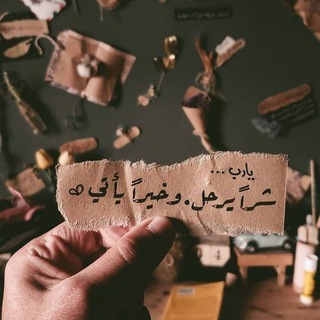 يارب ...
شراً يرحل . وخيراً يأتي